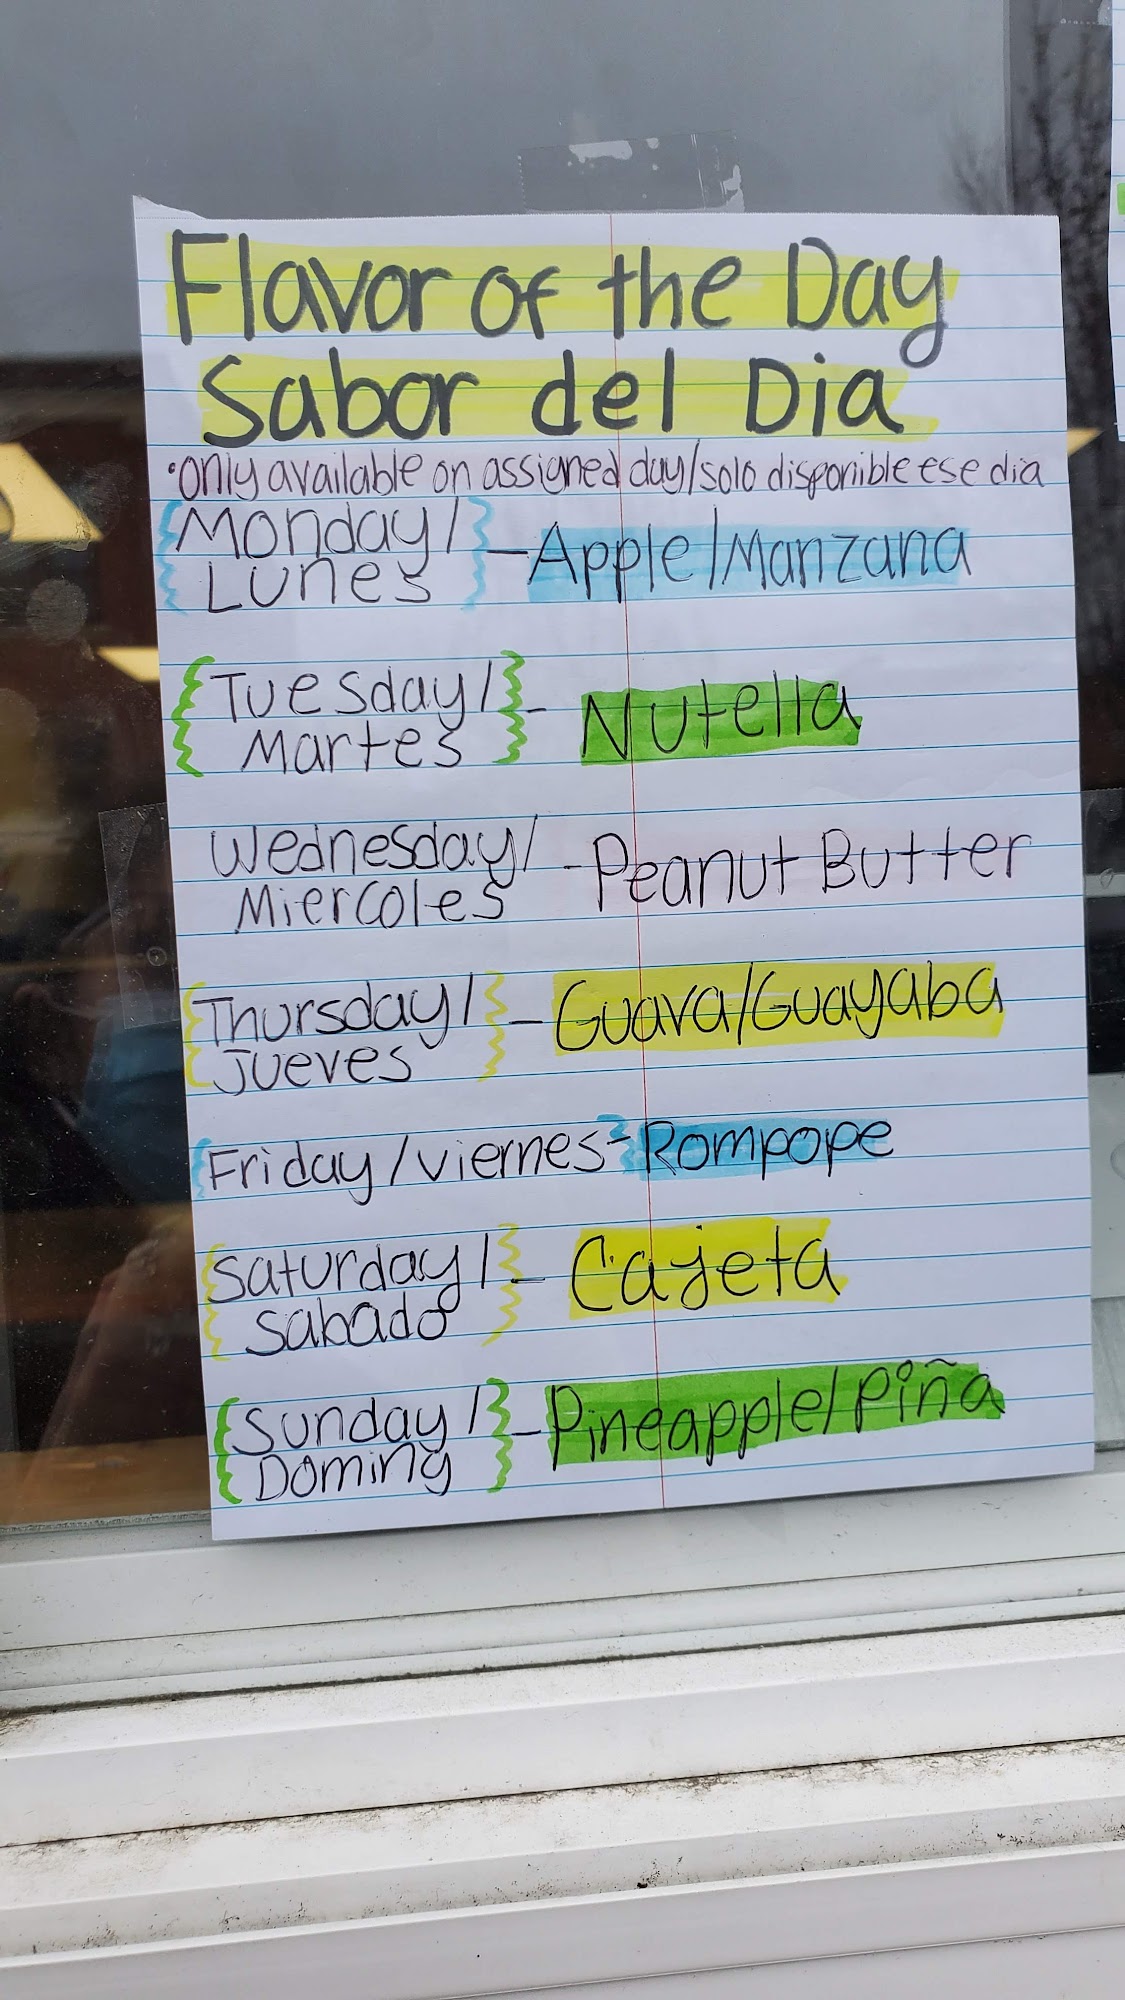 Flavor of the Day
Sabor del Dia
•only available on assigned day/solo disponible ese dia
Monday/
Lunes
- Apple/Manzana
Tuesday/
Martes
- Nutella
Wednesday/
Miercoles
- Peanut Butter
Thursday/
Jueves
- Guava/Guayaba
Friday/viernes - Rompope
Saturday/
Sabado
- Cajeta
Sunday/
Doming
- Pineapple/Piña